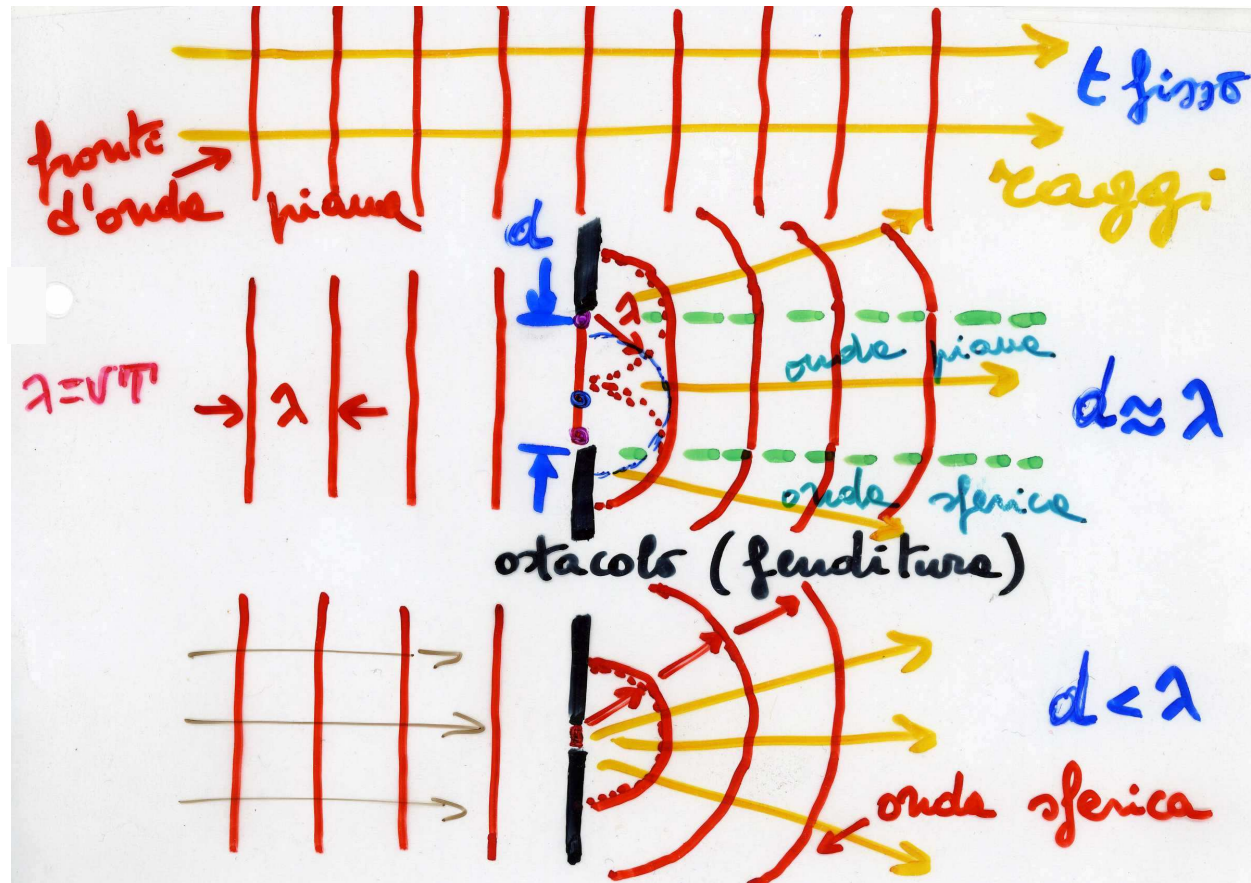 t fisso
fronte
d'onda piana
raggi
d
λ
onda piana
λ=vT
λ
d≈λ
onda sferica
ostacolo (fenditura)
d<λ
onda sferica